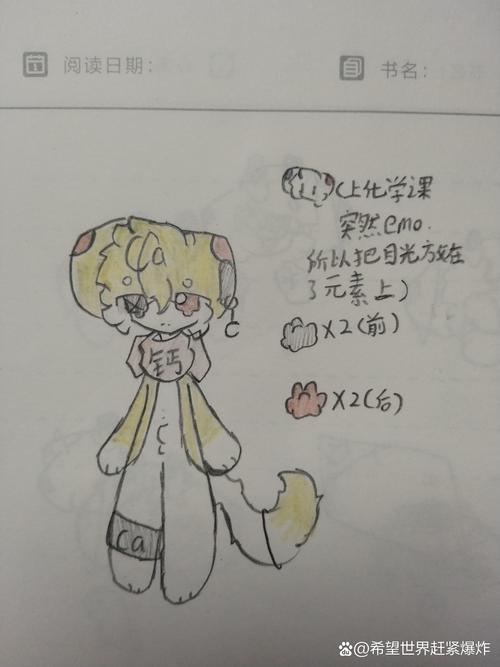 阅读日期：
书名：
(上化学课
突然emo.
所以把目光放在
了元素上)
X2(前)
X2(后)
Ca
C
钙
C
Ca
@希望世界赶紧爆炸